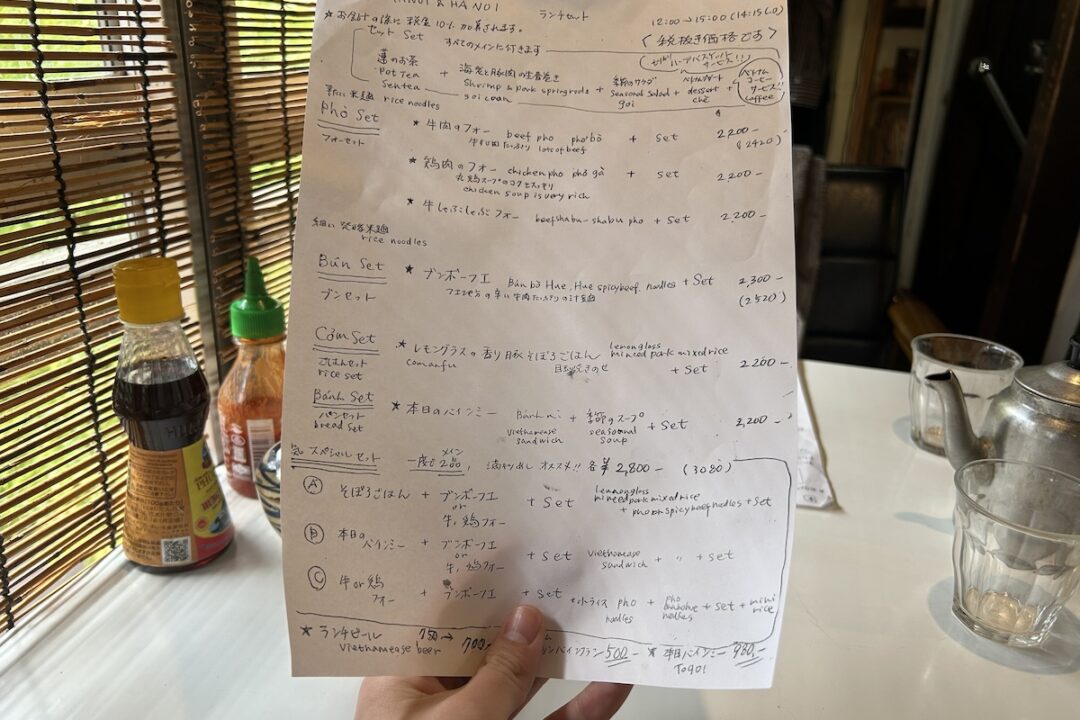 HANOI & HANOI
ランチセット
12:00→15:00 (14:15 LO)
★ お会計の後に税金10%加算されます。
〈税抜き価格です〉
セット Set すべてのメインに付きます
蓮のお茶
Pot Tea
Sentea
+ 海老と豚肉の生春巻き
Shrimp & pork springrools
goi cuon
+ 季節のサラダ
seasonal salad
goi
+ ベトナムデザート
dessert
chè
+ ベトナム
コーヒー
サービス!!
coffee
rice noodles
Phở Set
フォーセット
★ 牛肉のフォー beef pho phở bò + set 2,200-
牛肉たっぷり lots of beef (2420)
★ 鶏肉のフォー chicken pho phở gà + set 2,200-
丸鶏スープのコクとスッキリ
chicken soup is very rich
★ 牛しゃぶしゃぶフォー beef shabu-shabu pho + Set 2,200-
細い発酵米麺
rice noodles
Bún Set
ブンセット
★ ブンボーフエ Bán bò Hue, Hue spicy beef noodles + Set 2,300-
フエ地方の辛い牛肉たっぷりの汁麺 (2520)
Cởm Set
ごはんセット
rice set
★ レモングラスの香り豚そぼろごはん lemonglass
minced pork mixed rice
目玉焼きのせ + Set 2200-
Bánh Set
パンセット
bread set
★ 本日のバインミー Bánh mì + 季節のスープ + Set 2,200-
vietnamease
sandwich
seasonal
soup
スペシャルセット 一度で メイン 2品, オススメ!! 各 2,800- (3080)
Ⓐ そぼろごはん + ブンボーフエ
or
牛, 鶏フォー
+ Set
lemonglass
minced pork mixed rice
+ pho or spicy beef noodles + set
Ⓑ 本日の
バインミー + ブンボーフエ
or
牛, 鶏フォー
+ set
vietnamease
sandwich + 〃 + set
Ⓒ 牛 or 鶏
フォー + ブンボーフエ + set +小ライス
pho
noodles
+ pho
noodles
+ set + mini
rice
★ ランチビール 750→ 700
Vietnamease beer
500- ★ 本日バインミー 980-
TOGO!